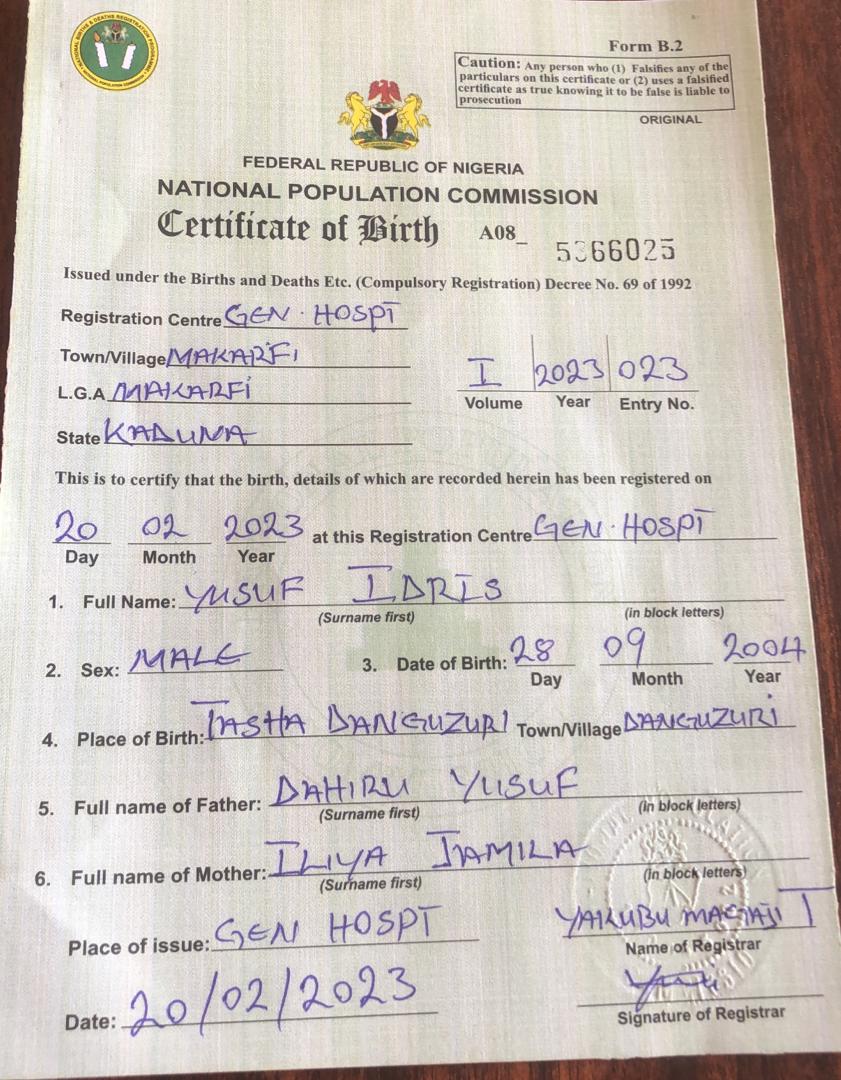 NATIONAL BIRTHS & DEATHS REGISTRATION PROGRAMME
NATIONAL POPULATION COMMISSION
Form B.2
Caution: Any person who (1) Falsifies any of the
particulars on this certificate or (2) uses a falsified
certificate as true knowing it to be false is liable to
prosecution
ORIGINAL
FEDERAL REPUBLIC OF NIGERIA
NATIONAL POPULATION COMMISSION
Certificate of Birth A08_ 5366025
Issued under the Births and Deaths Etc. (Compulsory Registration) Decree No. 69 of 1992
Registration Centre GEN. HOSPT
Town/Village MAKARFI
L.G.A MAKARFI
State KADUNA
I 2023 023
Volume Year Entry No.
This is to certify that the birth, details of which are recorded herein has been registered on
20 02 2023 at this Registration Centre GEN. HOSPT
Day Month Year
1. Full Name: YUSUF IDRIS
(Surname first) (in block letters)
2. Sex: MALE 3. Date of Birth: 28 09 2004
Day Month Year
4. Place of Birth: TASHA DANGUZURI Town/Village DANGUZURI
5. Full name of Father: DAHIRU YUSUF
(Surname first) (in block letters)
6. Full name of Mother: ILIYA JAMILA
(Surname first) (in block letters)
Place of issue: GEN HOSPT YAKUBU MAGAJI T
Name of Registrar
Date: 20/02/2023
Signature of Registrar